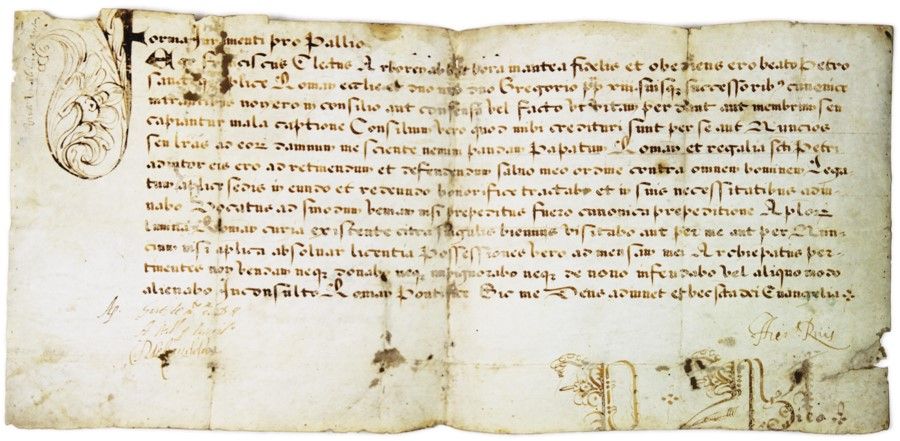 Forma Juramenti pro Pallio
Ego Franciscus Electus Arboren ab hac hora in antea fidelis et obediens ero beato Petro
aplice Roman ecclie et dno nro dno Gregorio pp xiii suisq successoribus canonice
intrantibus non ero in consilio aut consensu vel facto ut vitam perdant aut membrum seu
capiantur mala captione Consilium vero quod mihi credituri sunt per se aut Nuncios
seu lras ad eor damnum me sciente nemini pandam Papatum Roman et regalia scti Petri
adiutor eis ero ad retinendum et defendendum salvo meo ordine contra omnem hominem Lega-
tum aplice sedis in eundo et redeundo honorifice tractabo et in suis necessitatibus adiu-
vabo Vocatus ad sinodum veniam nisi prepeditus fuero canonica prepeditione Aplor
limina Roman curia existente citra singulis bienniis visitabo aut per me aut per Nun-
cium nisi aplica absolvar licentia Possessiones vero ad mensam mei Archiepatus per-
tinentes non vendam neq donabo neq impignorabo neque de novo infeudabo vel aliquo modo
alienabo Inconsulto Roman Pontifice Sic me Deus adiuvet et hec scta dei Evangelia